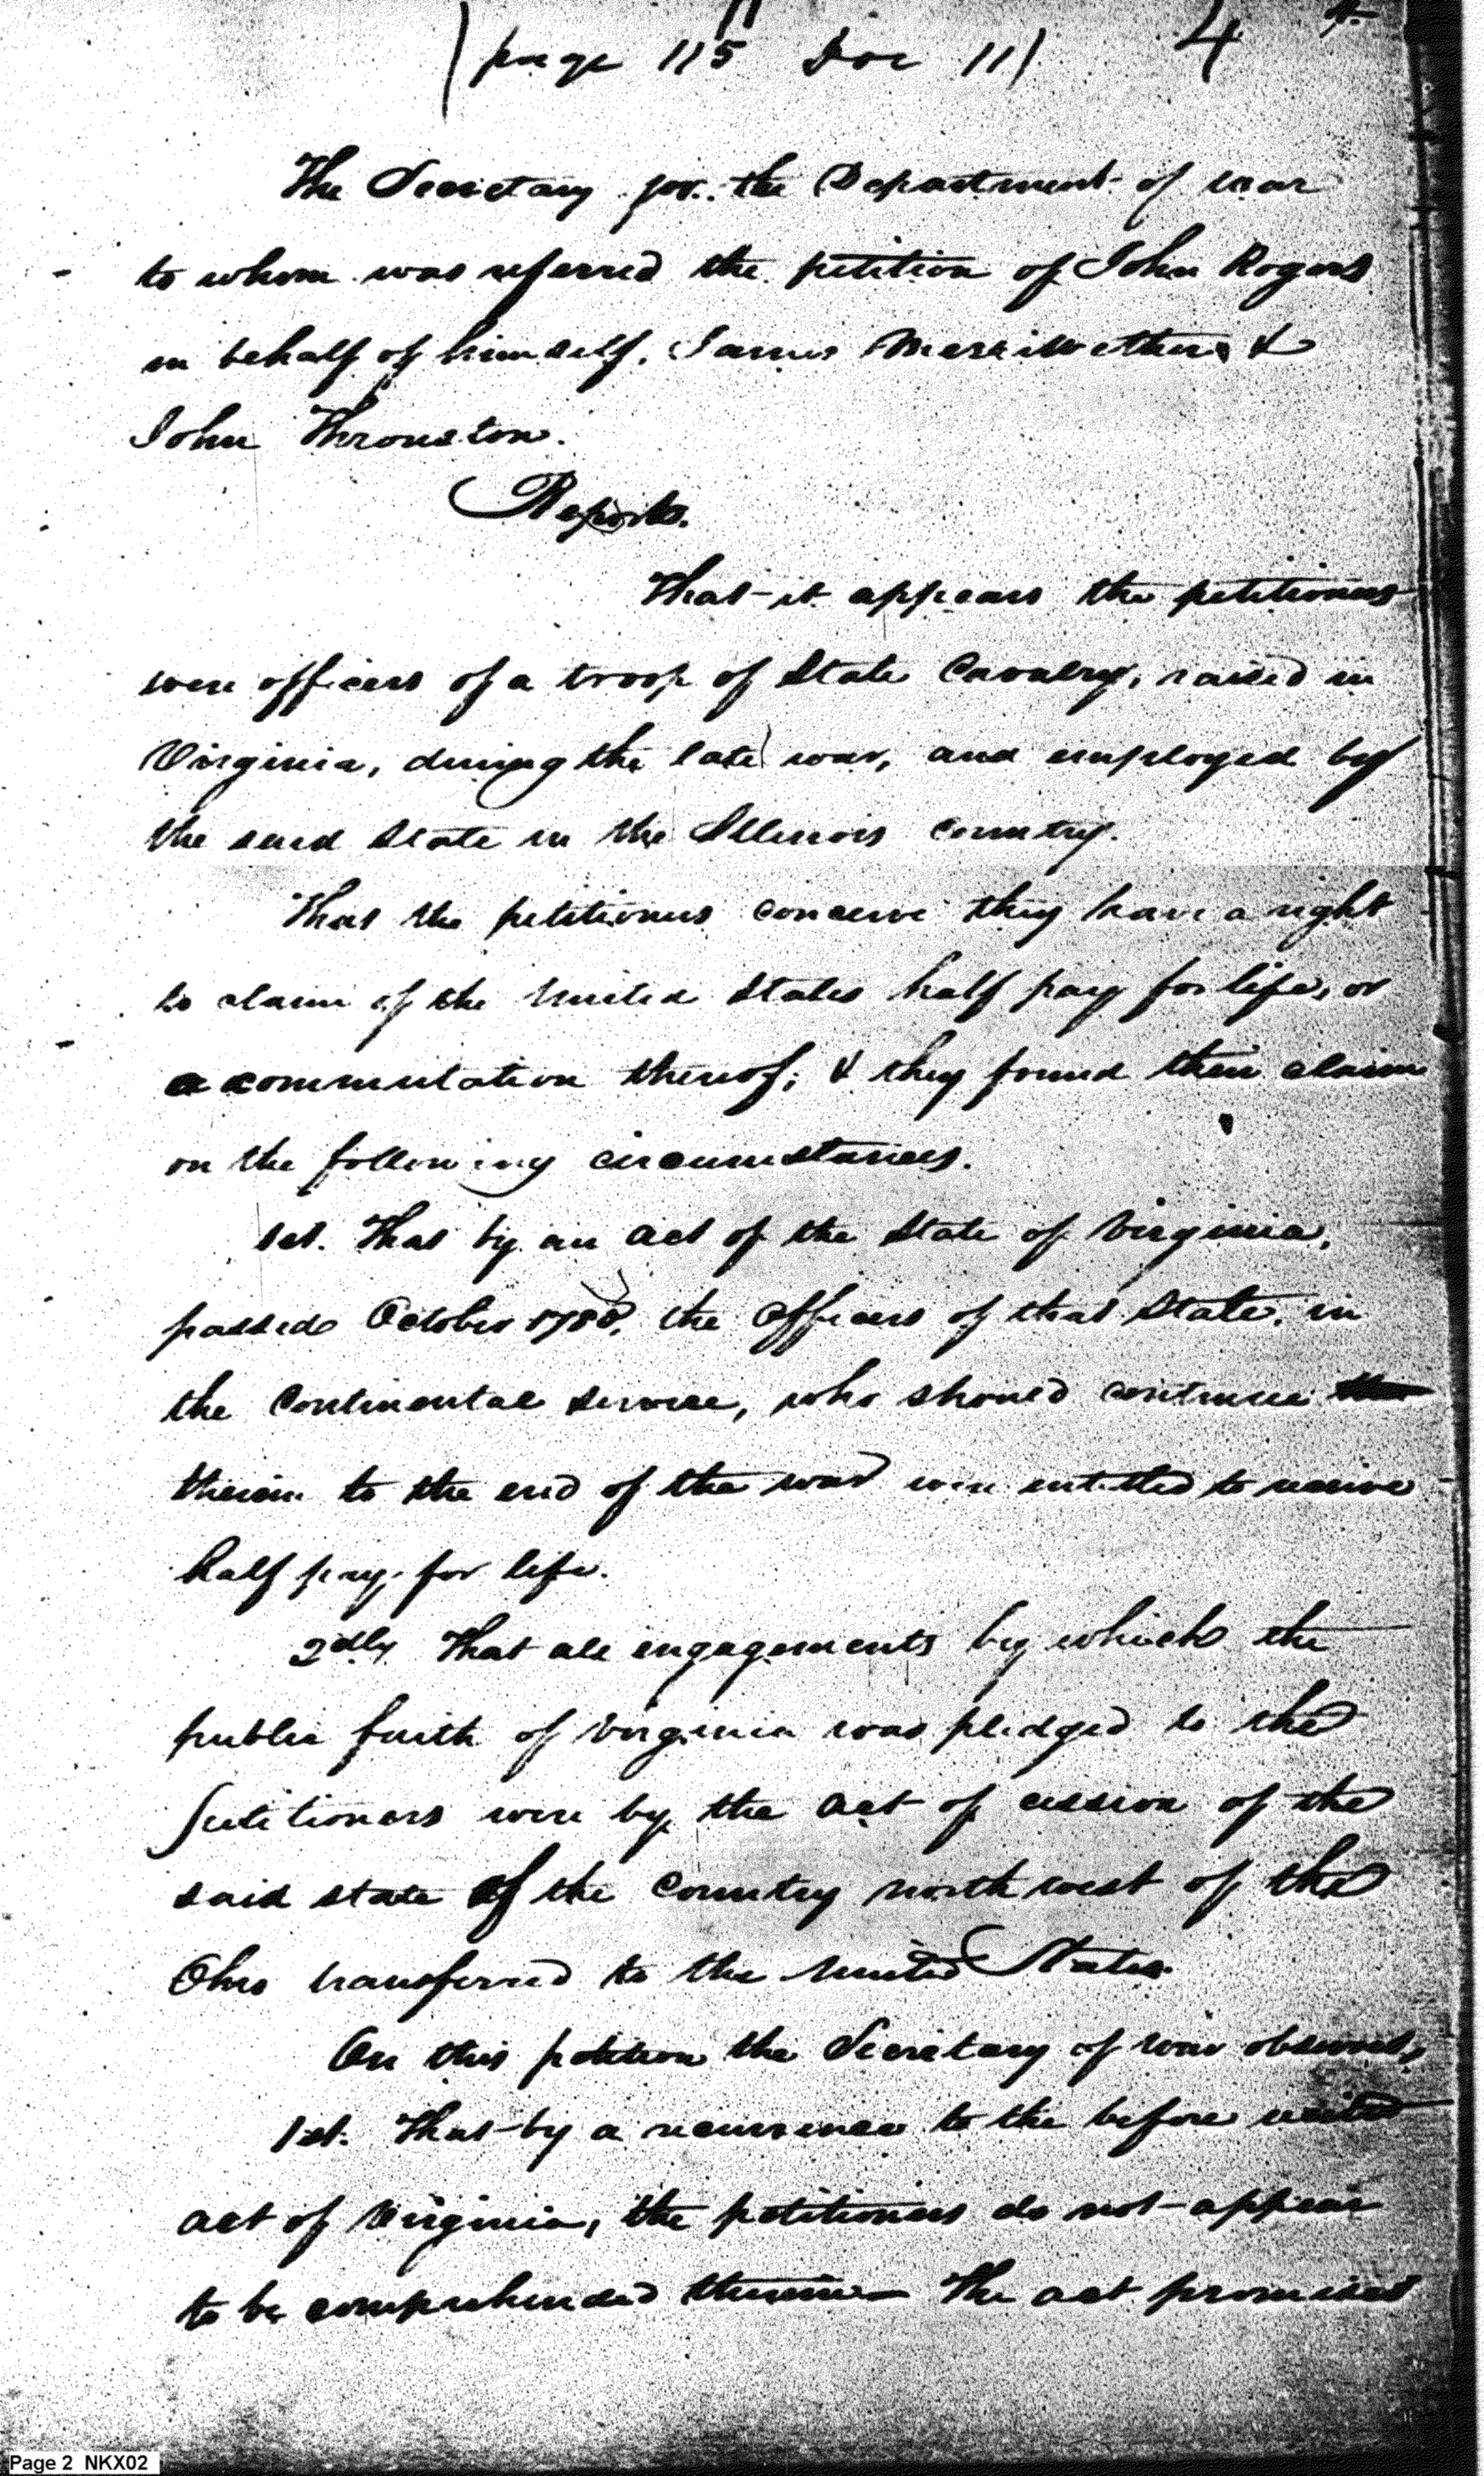 11
(page 115 Doc 11) 4 4.
The Secretary for the Department of war
to whom was referred the petition of John Rogers
in behalf of himself, James Merriwether &
John Throuston.
Reports.
That it appears the petitioners
were officers of a troop of State Cavalry, raised in
Virginia, during the late war, and employed by
the said State in the Illinois country.
That the petitioners conceive they have a right
to claim of the United States half pay for life, or
a commutation thereof; & they found their claim
on the following circumstances.
1st. That by an act of the State of Virginia,
passed October 1780, the officers of that State, in
the Continental service, who should continue
therein to the end of the war were entitled to receive
half pay for life.
2dly That all engagements by which the
public faith of Virginia was pledged to the
petitioners were by the act of cession of the
said state of the Country north west of the
Ohio transferred to the United States.
On this petition the Secretary of war observes,
1st. That by a recurrence to the before recited
act of Virginia, the petitioners do not appear
to be comprehended therein— The act promised
Page 2 NKX02